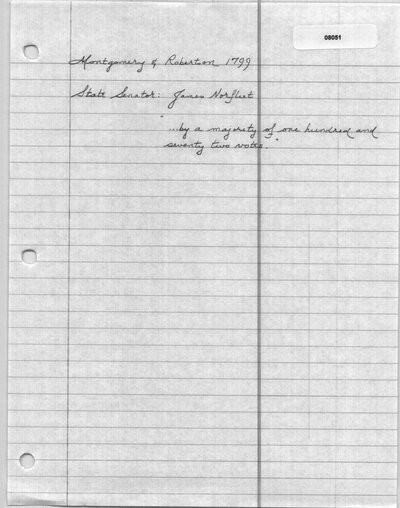 08051
Montgomery & Robertson 1799
State Senator: James Norfleet
"...by a majority of one hundred and
seventy two votes."